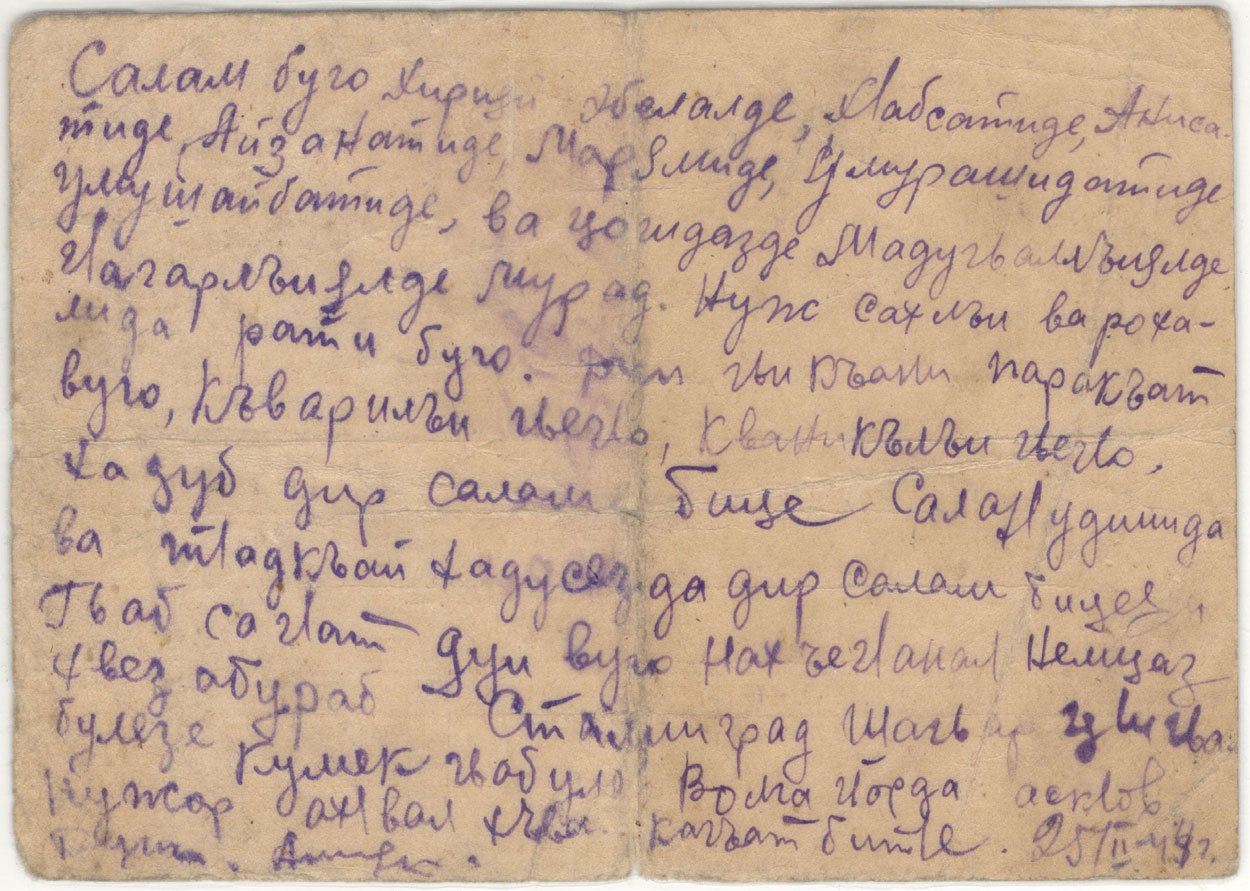 Салам буго хирияй эбелалде, ХIабсатиде, Аниса-
тиде, Айзанатиде, Марямиде, Умурашидатиде
умушайбатиде, ва цогидазде Мадугьаллъиялде
ГIагарлъиялде мурад. Нуж сахлъи ва роха-
лида рати буго. гьикъани паракъат
вуго, Къварилъи гьечIо, Кваникълъи гьечIо.
Хадуб дир салам бице СалахIудинида
ва тIадкъай хадусезда дир Салам бицея
Гьаб сагIат дун вуго нахъегIанал Немцаз
хвезабураб Сталинград шагьар цIигьа-
булезе кумек гьабуле Волга гIорда аскIов
Нужор ахIвал хъван кагъат битIе. 25/II-44 г.